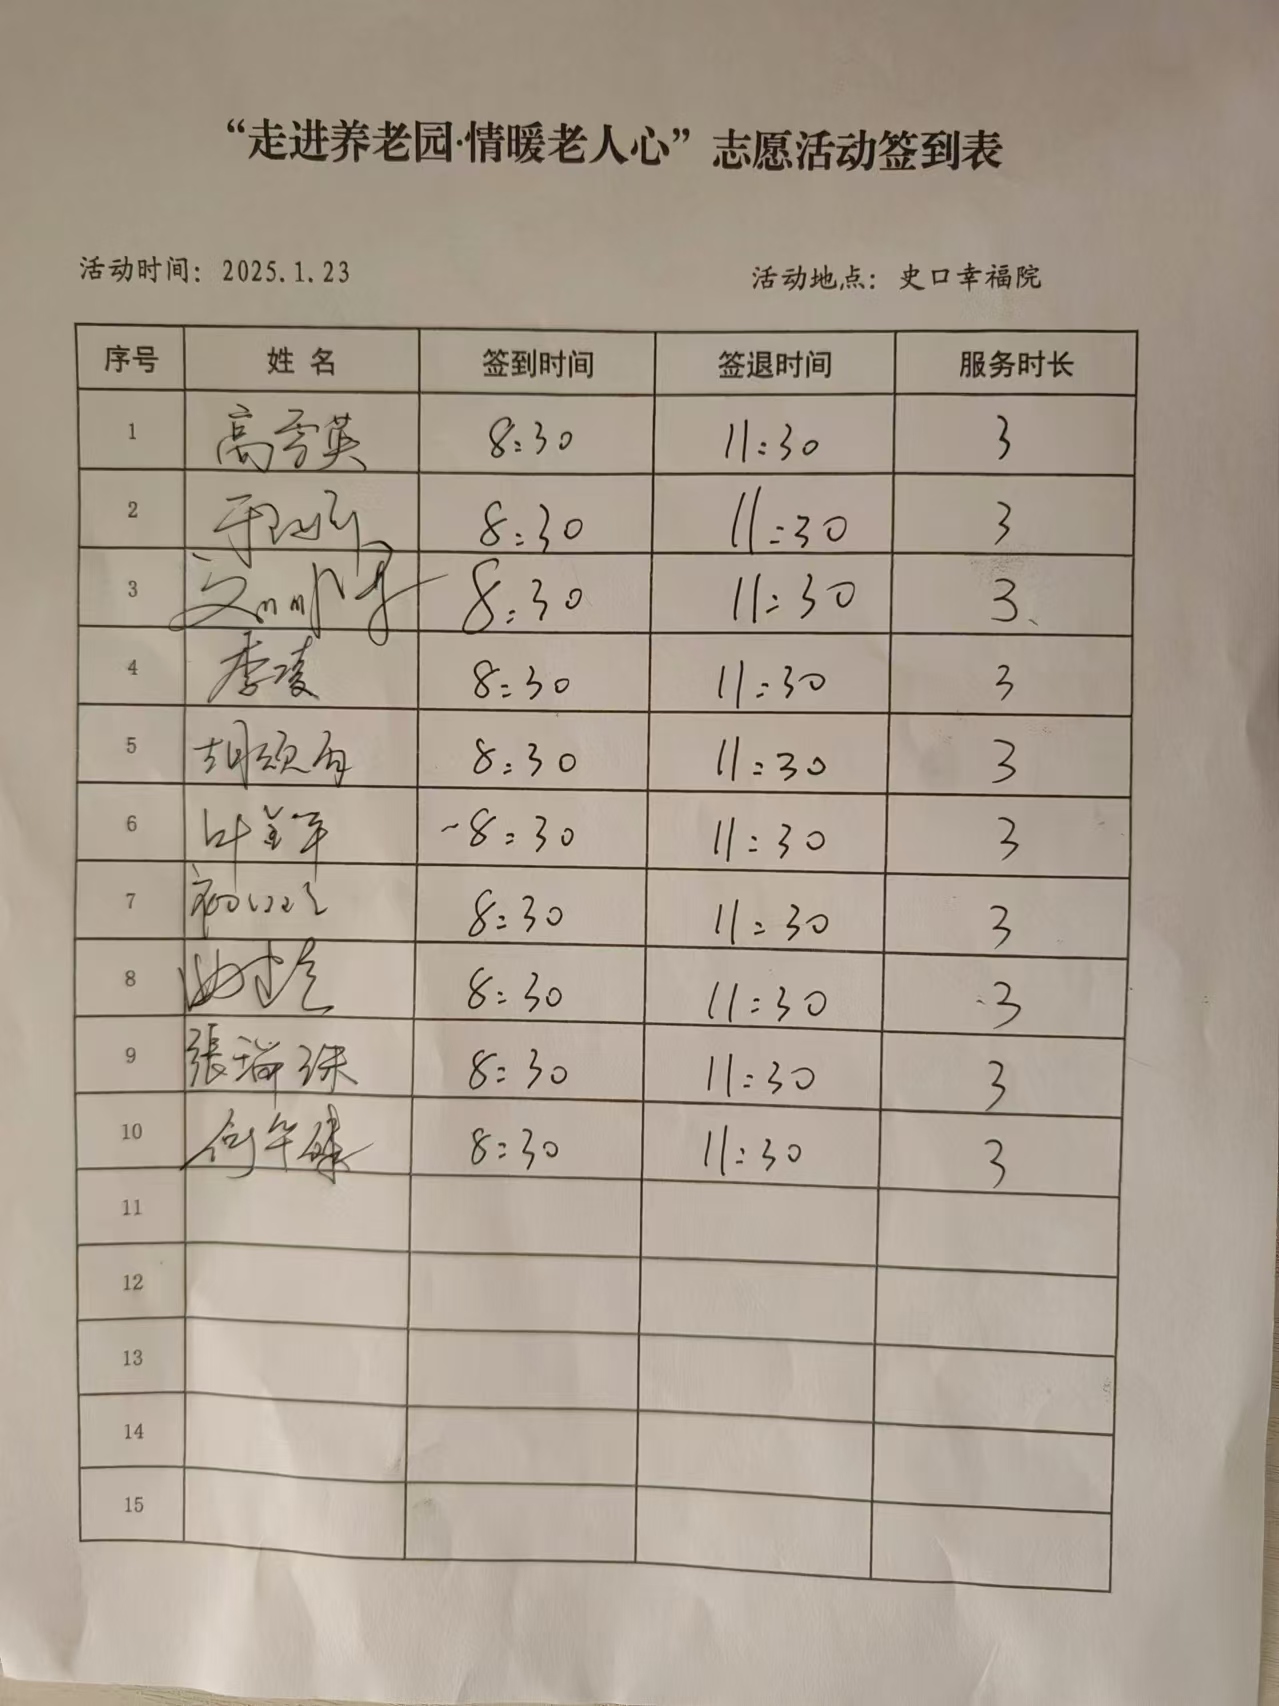 “走进养老园·情暖老人心”志愿活动签到表
活动时间：2025.1.23 活动地点：史口幸福院
序号 姓名 签到时间 签退时间 服务时长
1 高雪英 8:30 11:30 3
2 8:30 11:30 3
3 8:30 11:30 3
4 李凌 8:30 11:30 3
5 胡 8:30 11:30 3
6 叶 8:30 11:30 3
7 8:30 11:30 3
8 8:30 11:30 3
9 張瑞珠 8:30 11:30 3
10 8:30 11:30 3
11
12
13
14
15